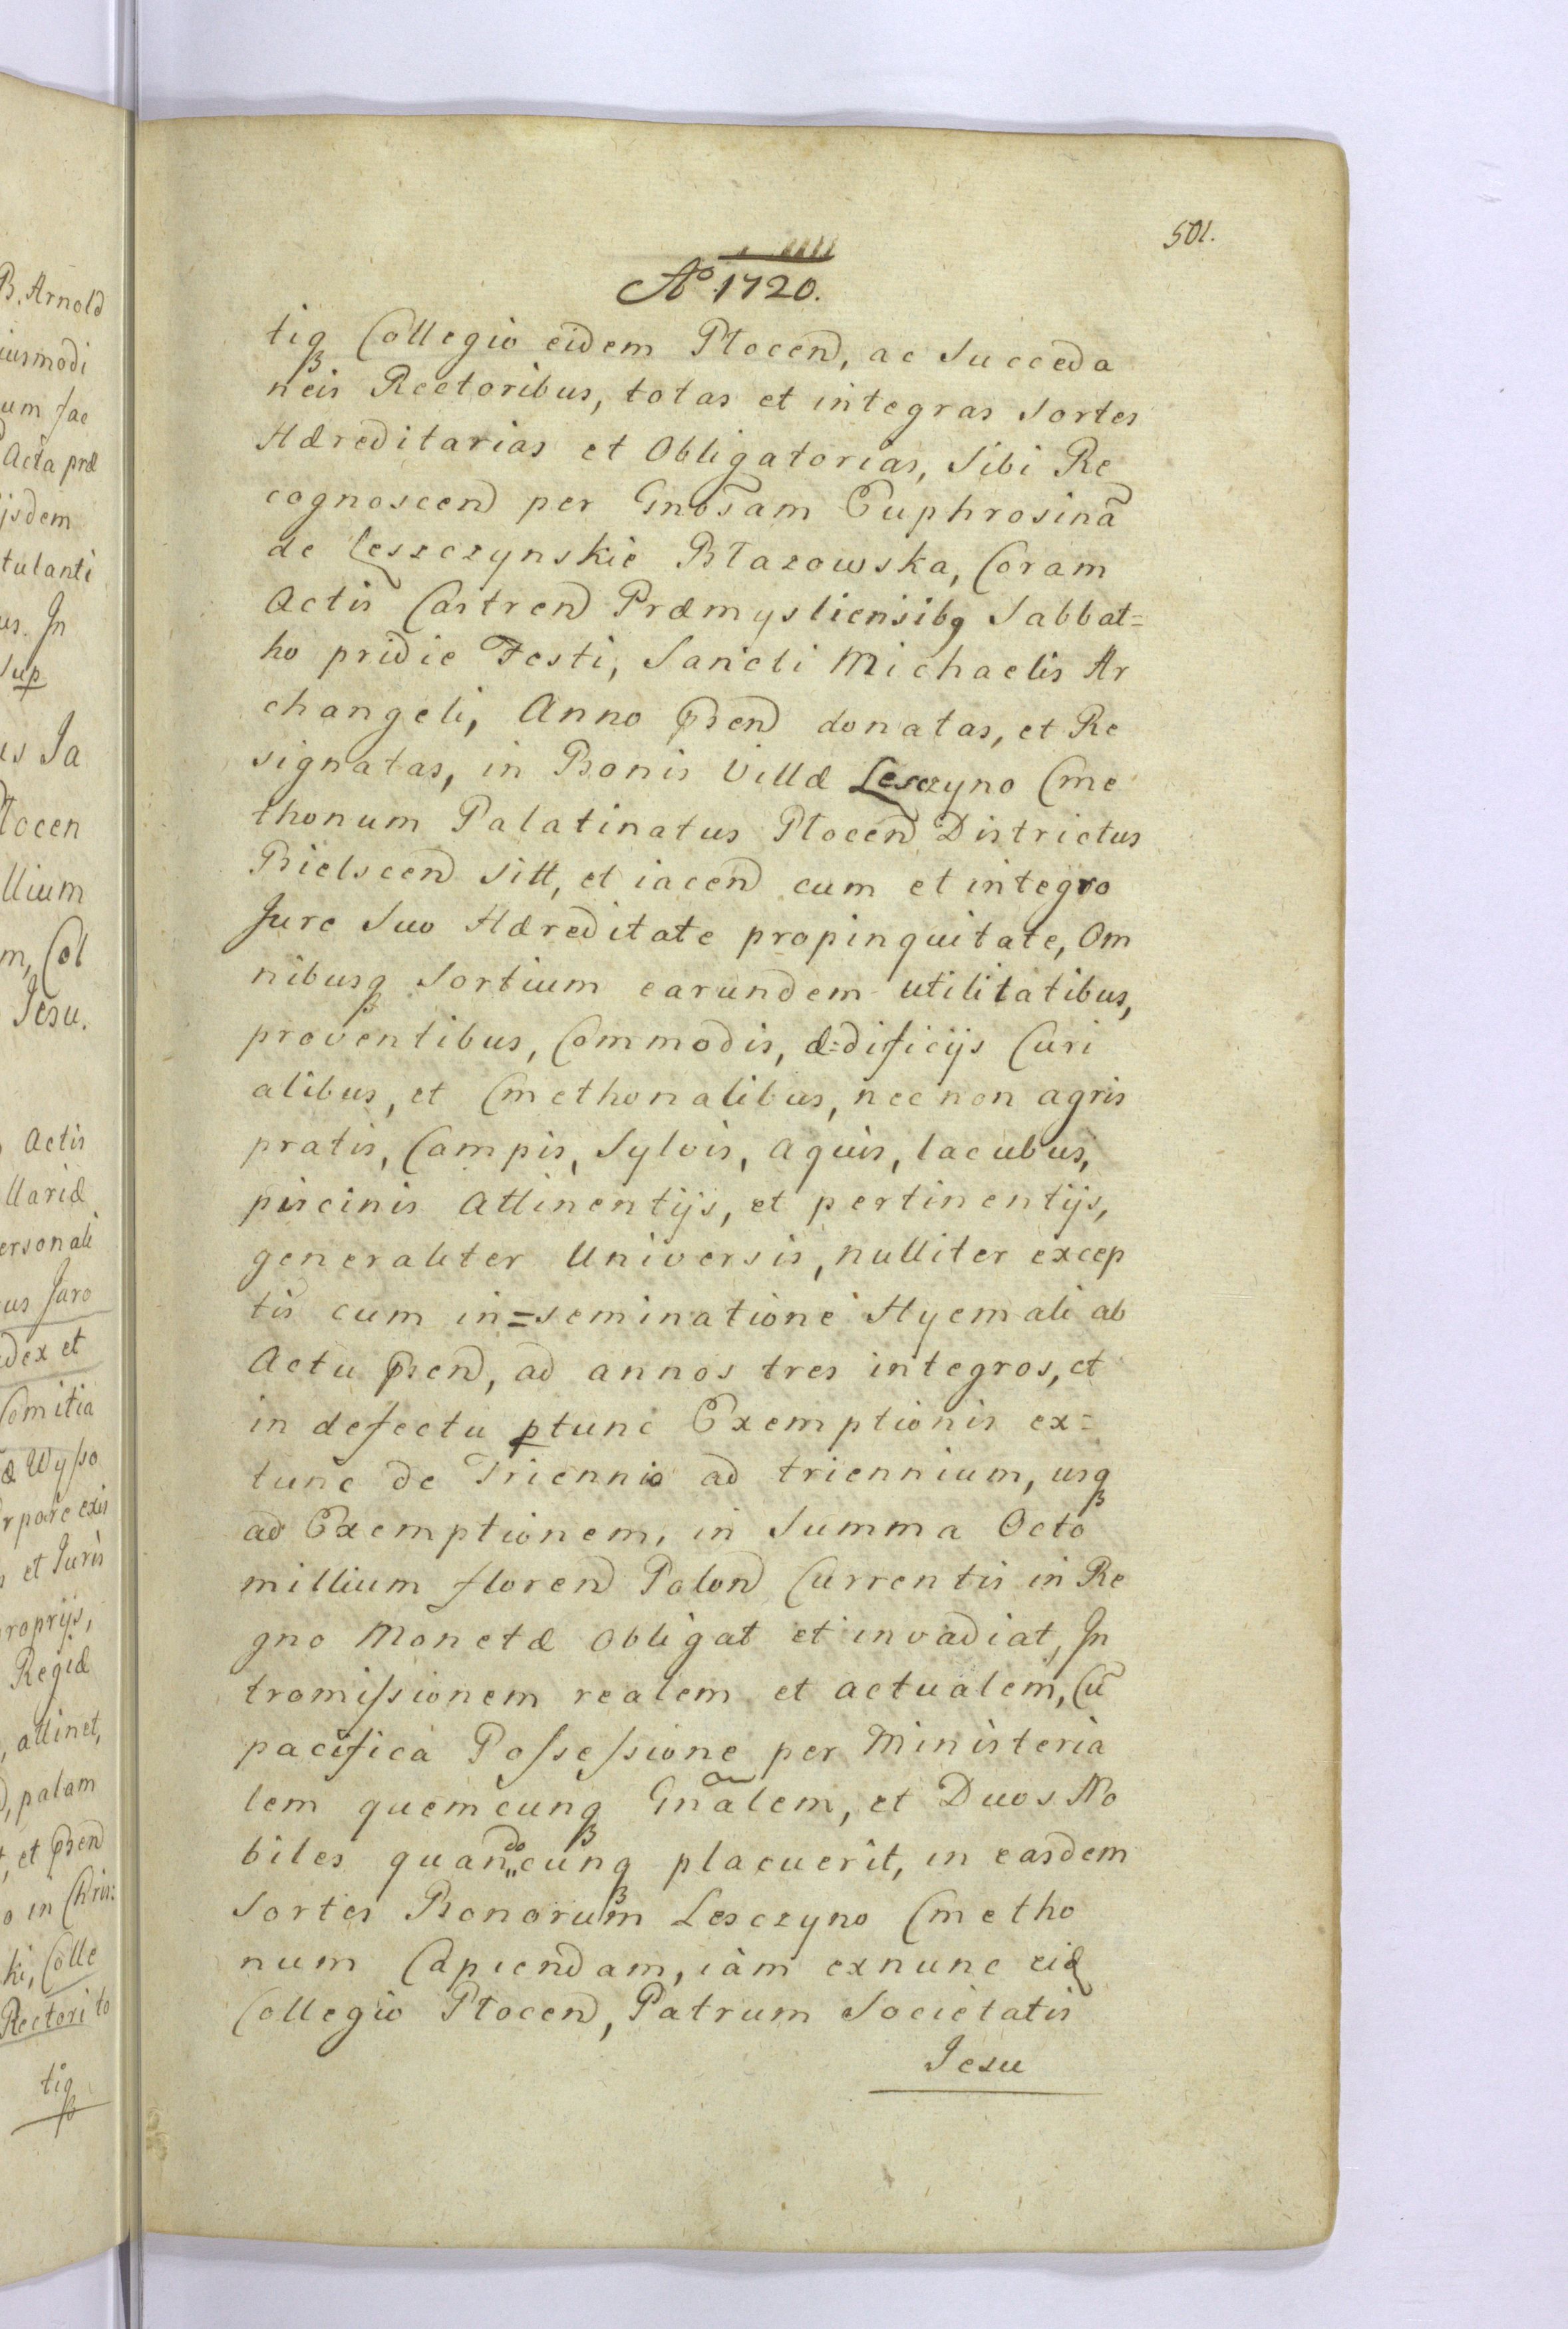 B. Arnold
iusmodi
um fac
Acta præ
ijsdem
tulanti
us. In
Sup
us Ja
Płocen
llium
m, Col
Jesu.
Actis
llariæ
ersonali
us Juro
dex et
Comitia
æ Wyſso
rpore exis
et Juris
roprijs,
Regiæ
, attinet,
, palam
, et Pnd
o in Chris:
ki, Colle
Rectori to
tiq
501.
Aº 1720.
tiq Collegio eidem Płocen, ac Succeda
neis Rectoribus, totas et integras Sortes
Hæreditarias et Obligatorias, Sibi Re
cognoscen per Gnosam Euphrosinā
de Leszczynskie Błazowska, Coram
Actis Castren Præmysliensibq Sabbat=
ho pridie Festi, Sancti Michaelis Ar
changeli, Anno Pnd donatas, et Re
signatas, in Bonis Villæ Lesczyno Cme
thonum Palatinatus Płocen Districtus
Bielscen Sitt, et iacen cum et integro
Jure Suo Hæreditate propinquitate, Om
nibusq Sortium earundem utilitatibus,
proventibus, Commodis, æ=dificijs Curi
alibus, et Cmethonalibus, nec non agris
pratis, Campis, Sylvis, aquis, lacubus,
piscinis Attinentijs, et pertinentijs,
generaliter Universis, nulliter excep
tis cum in=seminatione Hyemali ab
Actu Pnd, ad annos tres integros, et
in defectu ptunc Exemptionis ex=
tunc de Triennio ad triennium, usq
ad Exemptionem, in Summa Octo
millium floren Polon Currentis in Re
gno Monetæ Obligat et invadiat, In
tromiſsionem realem et actualem, Cū
pacifica Poſseſsione per Ministeria
lem quemcunq Gnālem, et Duos No
biles quandocunq placuerit, in easdem
Sortes Bonorum Lesczyno Cmetho
num Capiendam, iam exnunc eid
Collegio Płocen, Patrum Societatis
Jesu